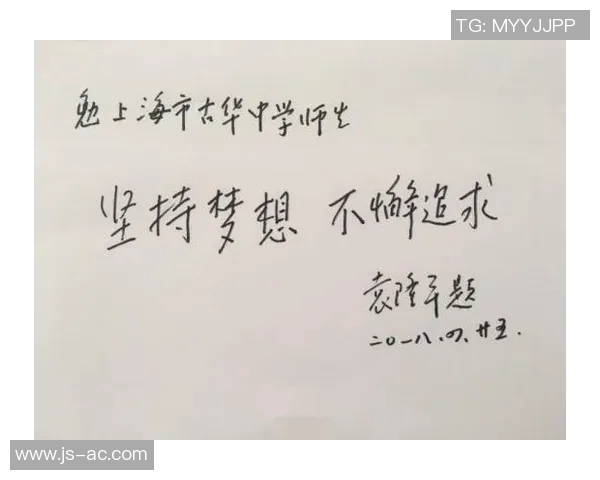 TG: MYYJJPP
勉上海市古华中学师生
坚持梦想 不懈追求
袁隆平题
二〇一八.四.廿五.
www.js-ac.com